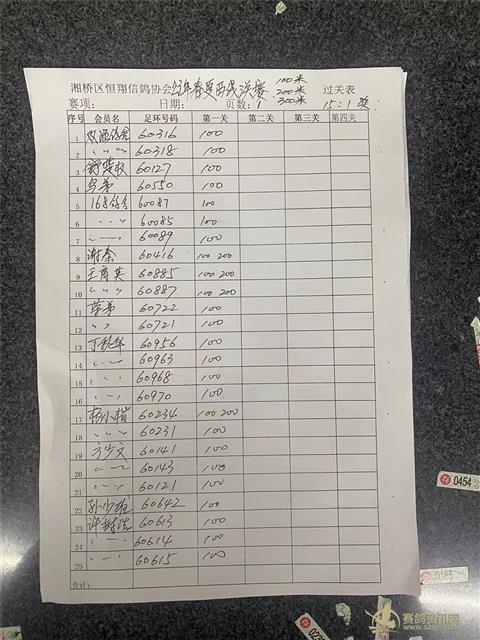 湘桥区恒翔信鸽协会 春夏 决赛 100米 200米 300米 过关表
赛项: 日期: 页数: 1 15:1奖
序号 会员名 足环号码 第一关 第二关 第三关 第四关
1 60316 100
2 〃 〃 〃 60318 100
3 60127 100
4 乌弟 60550 100
5 168鸽舍 60087 100
6 〃 〃 〃 60085 100
7 〃 〃 〃 60089 100
8 谢泰 60416 100 200
9 60885 100 200
10 〃 〃 〃 60887 100 200
11 60722 100
12 〃 〃 60721 100
13 60956 100
14 〃 〃 〃 60963 100
15 〃 〃 〃 60968 100
16 〃 〃 〃 60970 100
17 杨小楷 60234 100 200
18 〃 〃 〃 60231 100
19 方少文 60141 100
20 〃 〃 〃 60143 100
21 〃 〃 〃 60121 100
22 孙少雄 60642 100
23 许树浩 60613 100
24 〃 〃 〃 60614 100
25 〃 〃 〃 60615 100
合计:
0454
0185
赛鸽资讯网